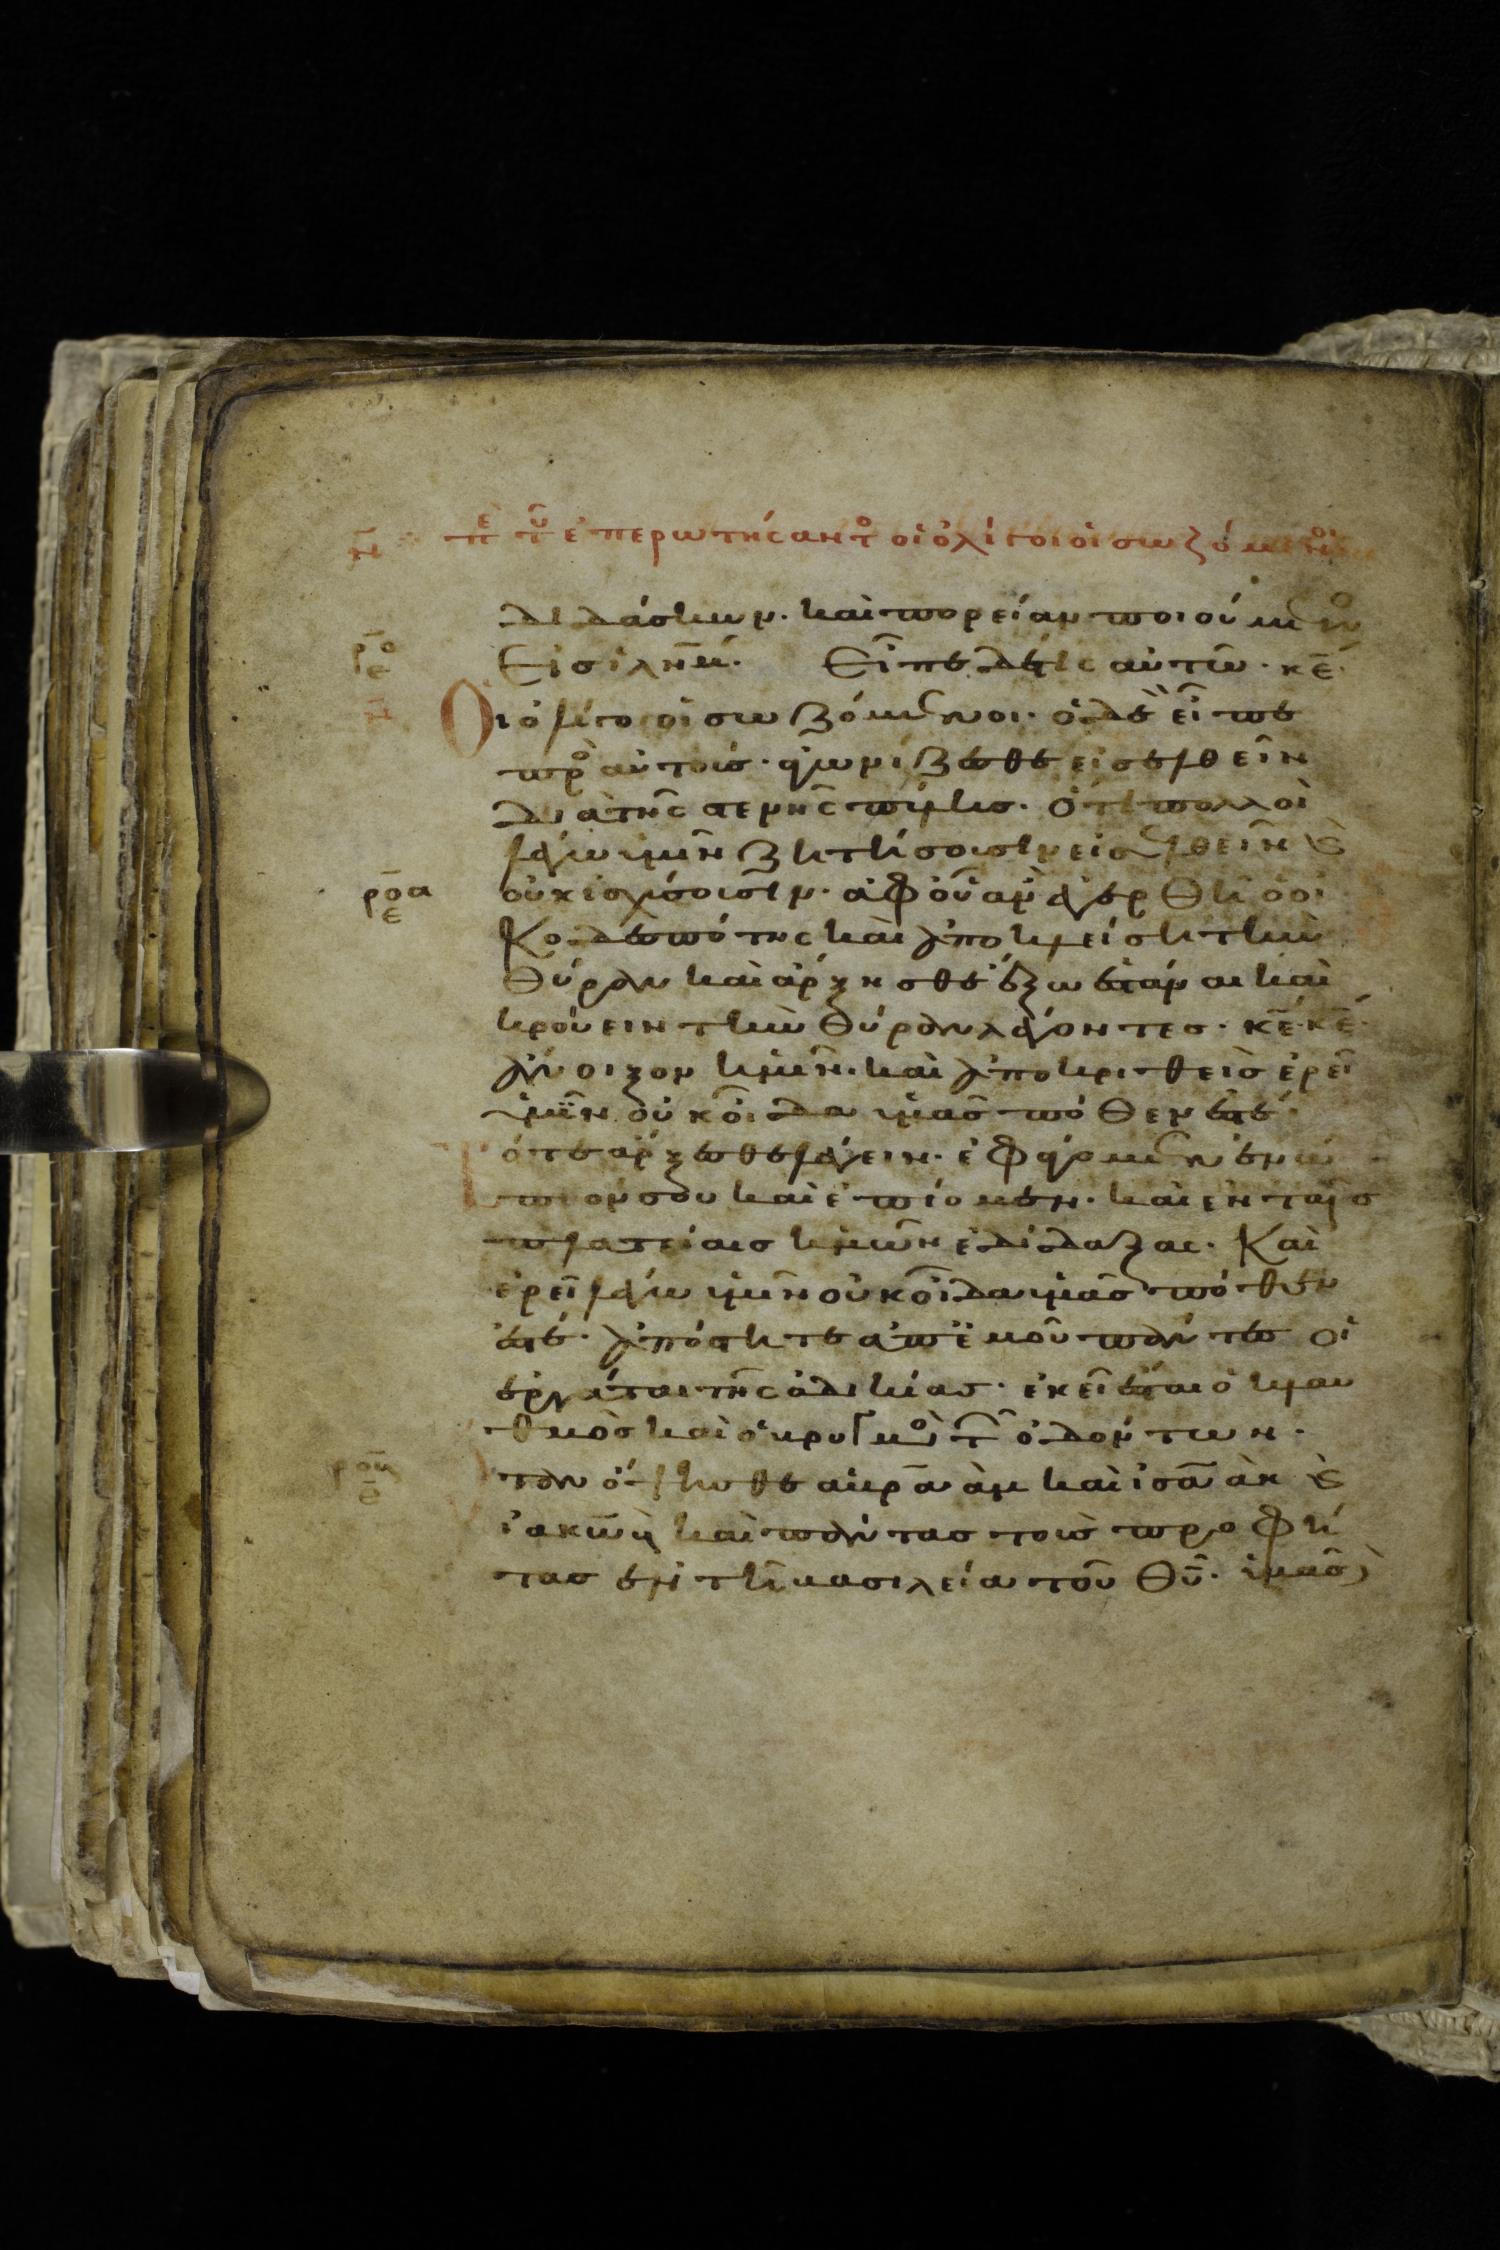 ν̄ πε του επερωτήσαντο οἱ ὀλίγοι οἱ σωζόμενοι
διδάσκων. καὶ πορείαν ποιούμενος
ρο
ε
εἰς ἰλῆμ. Εἶπε δέ τις αὐτῶ. κε̄
ν̄
Οἱ ὀλίγοι οἱ σωζόμενοι. ὁ δὲ εἶπε
πρὸ αὐτούς. ἀγωνίζεσθε εἰσελθεῖν
διὰ τῆς στενῆς πύλης. ὅτι πολλοὶ
λέγω ὑμῖν ζητήσουσιν εἰσελθεῖν ϗ
ροα
ε
οὐκ ἰσχύσουσιν. ἀφ οὗ ἂν ἐγερθῆ ὁ οἰ
κοδεσπότης καὶ ἀποκλείση τὴν
θύραν καὶ ἄρχησθε ἔξω ἑστάναι καὶ
κρούειν τὴν θύραν λέγοντες. κε̄ κε̄
ἄνοιξον ἡμῖν. καὶ ἀποκριθεὶς ἐρεῖ
ὑμῖν οὐκ οἶδα ὑμᾶς πόθεν ἐστέ.
ότε ἄρξεσθε λέγειν. ἐφάγομεν ἐνώ
πιον σου καὶ ἐπίομεν. καὶ ἐν ταῖς
πλατείαις ἡμῶν ἐδίδαξας. Καὶ
ἐρεῖ λέγω ὑμῖν οὐκ οἶδα ὑμᾶς πόθεν
ἐστέ. ἀπόστητε ἀπ ἐμοῦ πάντες οἱ
ἐργάται τῆς ἀδικίας. ἐκεῖ ἔσται ὁ κλαυ
θμὸς καὶ ὁ βρυγμὸς τῶν ὀδόντων.
ρο
ε
ταν ὄψησθε αβραὰμ καὶ ἰσαὰκ ϗ
ἰακὼβ καὶ πάντας τοὺς προφή
τας ἐν τῆ βασιλεία τοῦ θῦ. ὑμᾶς